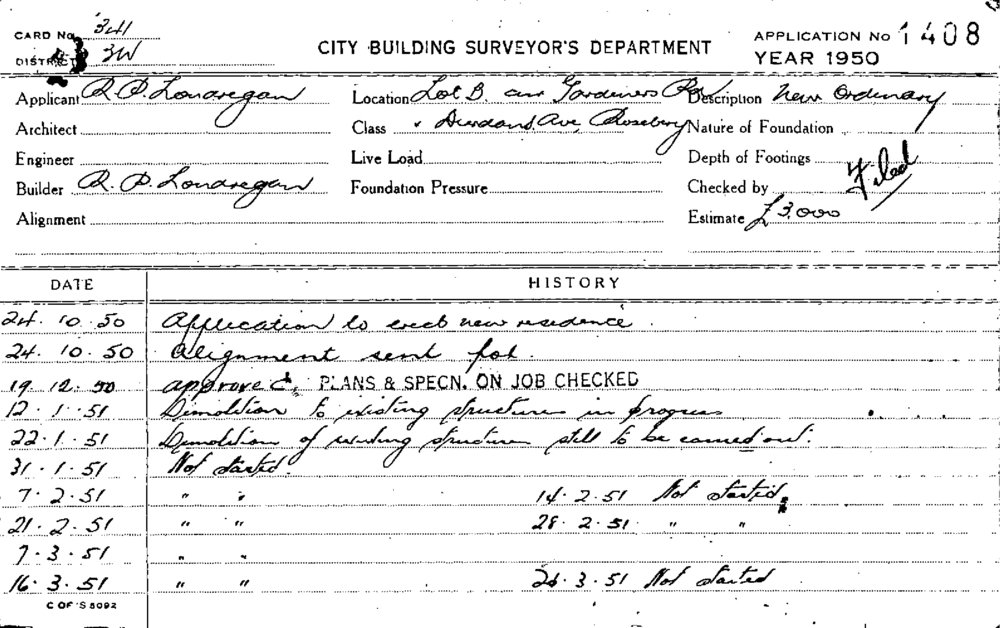 CARD No. 341
DISTRICT 3W
CITY BUILDING SURVEYOR'S DEPARTMENT
APPLICATION No 1408
YEAR 1950
Applicant R. P. Lonaregan Location Lot B. cnr Gardeners Rd Description New Ordinary
Architect Class & Durdans Ave, Rosebery Nature of Foundation
Engineer Live Load Depth of Footings
Builder R. P. Lonaregan Foundation Pressure Checked by Filed
Alignment Estimate £3,000
DATE HISTORY
24. 10. 50 Application to erect new residence.
24. 10. 50 Alignment sent for.
19. 12. 50 approved. PLANS & SPECN. ON JOB CHECKED
12. 1. 51 Dimolition to existing structure in progress
22. 1. 51 Demolition of existing structure still to be carried out.
31. 1. 51 Not started.
7. 2. 51 " " 14. 2. 51 Not started.
21. 2. 51 " " 28. 2. 51. " "
7. 3. 51 " "
16. 3. 51 " " 26. 3. 51 Not started
C OF S 8092